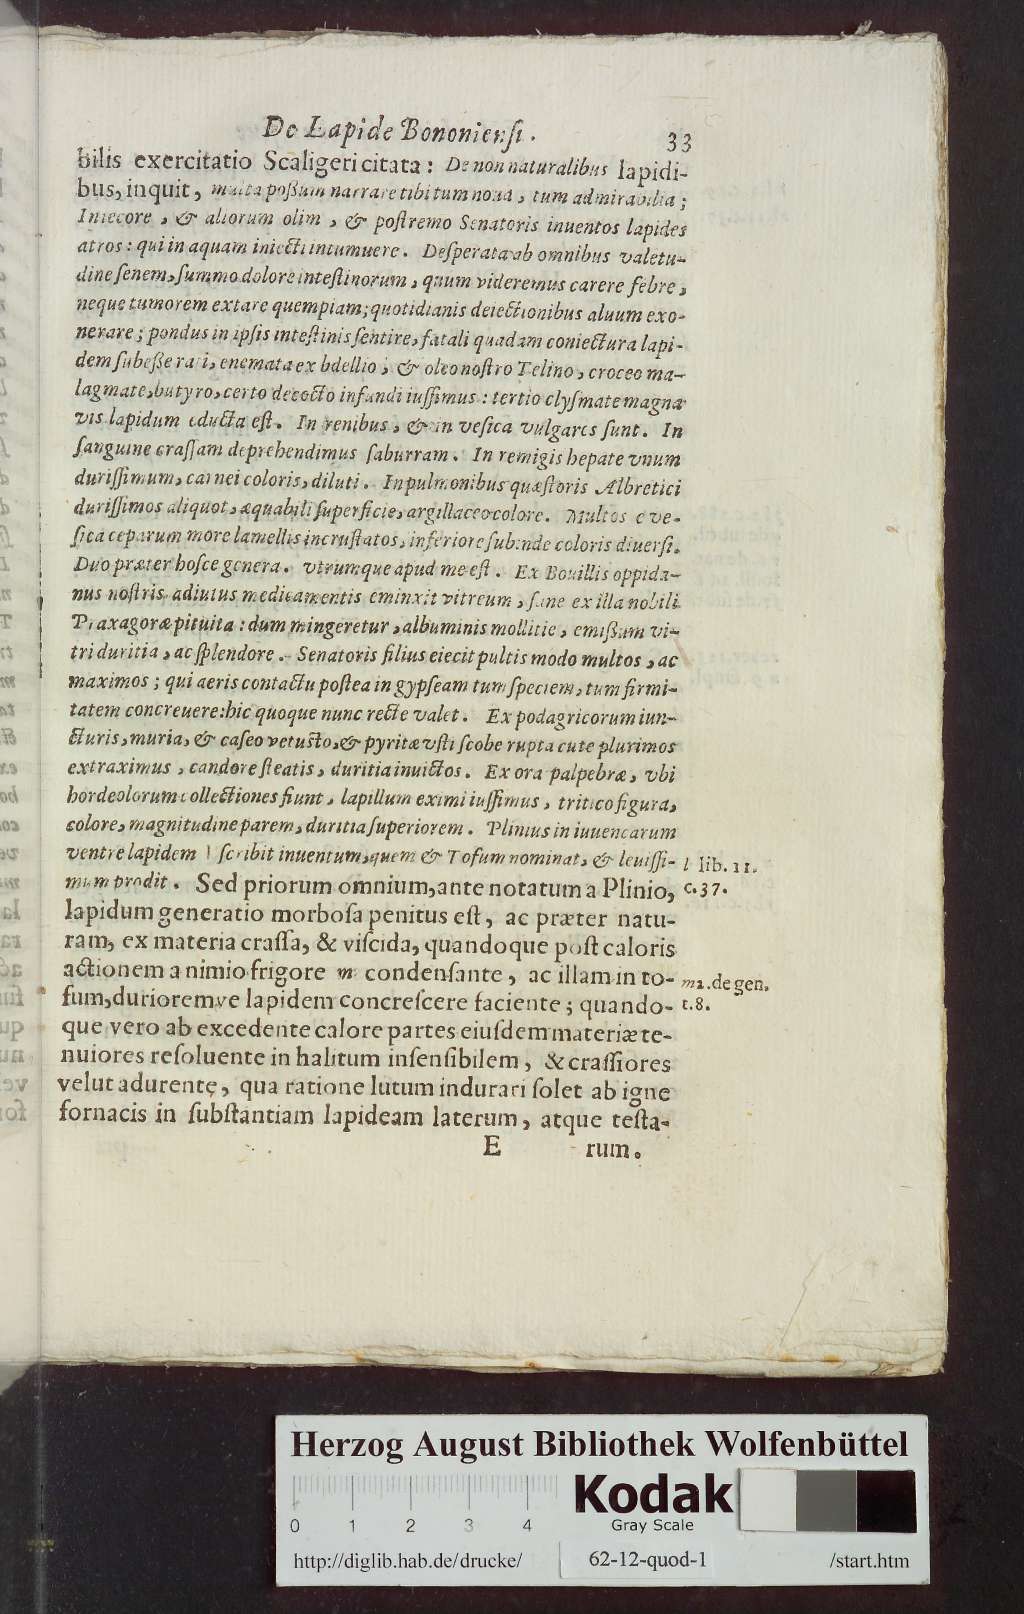 De Lapide Bononiensi. 33
bilis exercitatio Scaligeri citata: De non naturalibus lapidi-
bus, inquit, multa poßum narrare tibi tum noua, tum admirabilia;
In iecore, & aliorum olim, & postremo Senatoris inuentos lapides
atros: qui in aquam iniecti intumuere. Desperata ab omnibus valetu-
dine senem, summo dolore intestinorum, quum videremus carere febre,
neque tumorem extare quempiam; quotidianis deiectionibus aluum exo-
nerare; pondus in ipsis intestinis sentire, fatali quadam coniectura lapi-
dem subeße rati, enemata ex bdellio, & oleo nostro Telino, croceo ma-
lagmate, butyro, certo decocto infundi iussimus: tertio clysmate magna
vis lapidum educta est. In renibus, & in vesica vulgares sunt. In
sanguine crassam deprehendimus saburram. In remigis hepate vnum
durissimum, carnei coloris, diluti. In pulmonibus quæstoris Albretici
durissimos aliquot, æquabili superficie, argillaceo colore. Multos e ve-
sica ceparum more lamellis incrustatos, inferiore subinde coloris diuersi.
Duo præter hosce genera. vtrumque apud me est. Ex Bouillis oppida-
nus nostris adiutus medicamentis eminxit vitreum, sane ex illa nobili
Praxagoræ pituita: dum mingeretur, albuminis mollitie, emißum vi-
tri duritia, ac splendore. Senatoris filius eiecit pultis modo multos, ac
maximos; qui aeris contactu postea in gypseam tum speciem, tum firmi-
tatem concreuere: hic quoque nunc recte valet. Ex podagricorum iun-
cturis, muria, & caseo vetusto, & pyritæ vsti scobe rupta cute plurimos
extraximus, candore steatis, duritia inuictos. Ex ora palpebræ, vbi
hordeolorum collectiones fiunt, lapillum eximi iussimus, tritico figura,
colore, magnitudine parem, duritia superiorem. Plinius in iuuencarum
ventre lapidem l scribit inuentum, quem & Tofum nominat, & leuissi-
mum prodit. Sed priorum omnium, ante notatum a Plinio,
lapidum generatio morbosa penitus est, ac præter natu-
ram, ex materia crassa, & viscida, quandoque post caloris
actionem a nimio frigore m condensante, ac illam in to-
fum, durioremve lapidem concrescere faciente; quando-
que vero ab excedente calore partes eiusdem materiæ te-
nuiores resoluente in halitum insensibilem, & crassiores
velut adurente, qua ratione lutum indurari solet ab igne
fornacis in substantiam lapideam laterum, atque testa-
E rum.
l lib. 11.
c. 37.
m 2. de gen.
t. 8.
Herzog August Bibliothek Wolfenbüttel
0 1 2 3 4
Kodak
Gray Scale
http://diglib.hab.de/drucke/ 62-12-quod-1 /start.htm